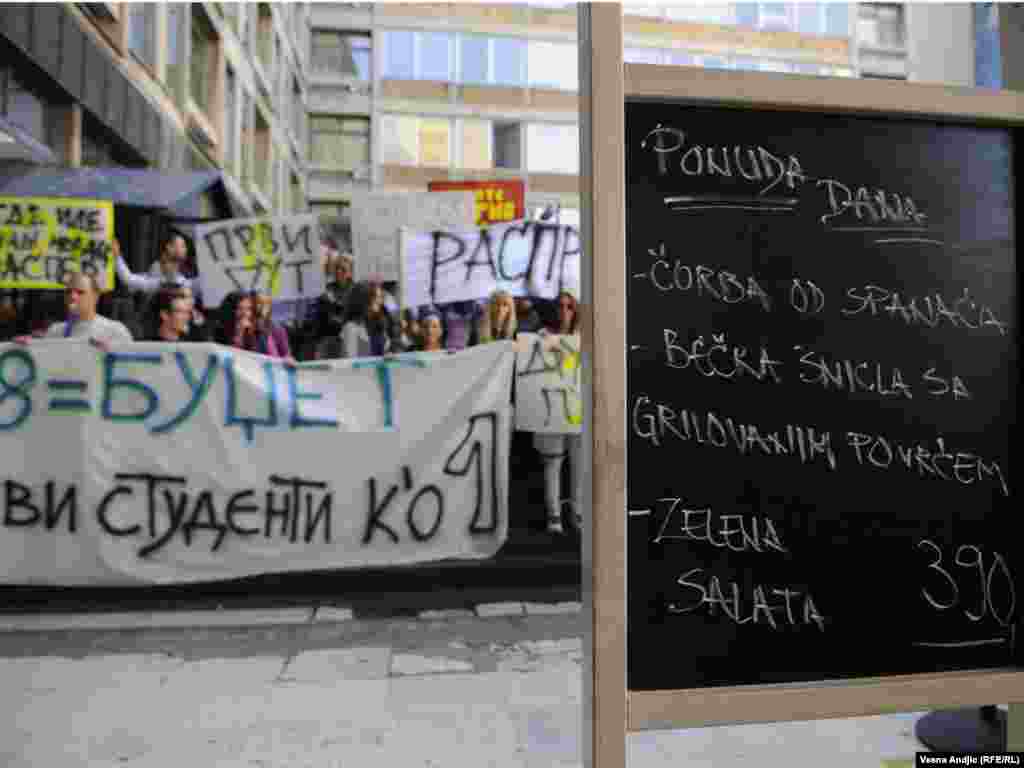 ГДЕ ИМЕ
ПРВИ
ПУТ
РАСПР
8=БУЏЕТ
ВИ СТУДЕНТИ К'О 1
PONUDA DANA
-ČORBA OD SPANAĆA
- BEČKA ŠNICLA SA
GRILOVANIM POVRĆEM
-ZELENA
SALATA
390
Vesna Andjic (RFE/RL)